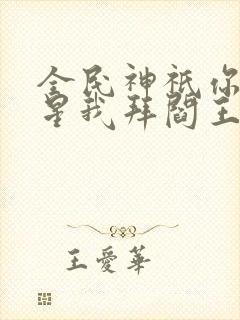 全民神祇你
星我拜閻王
王愛華